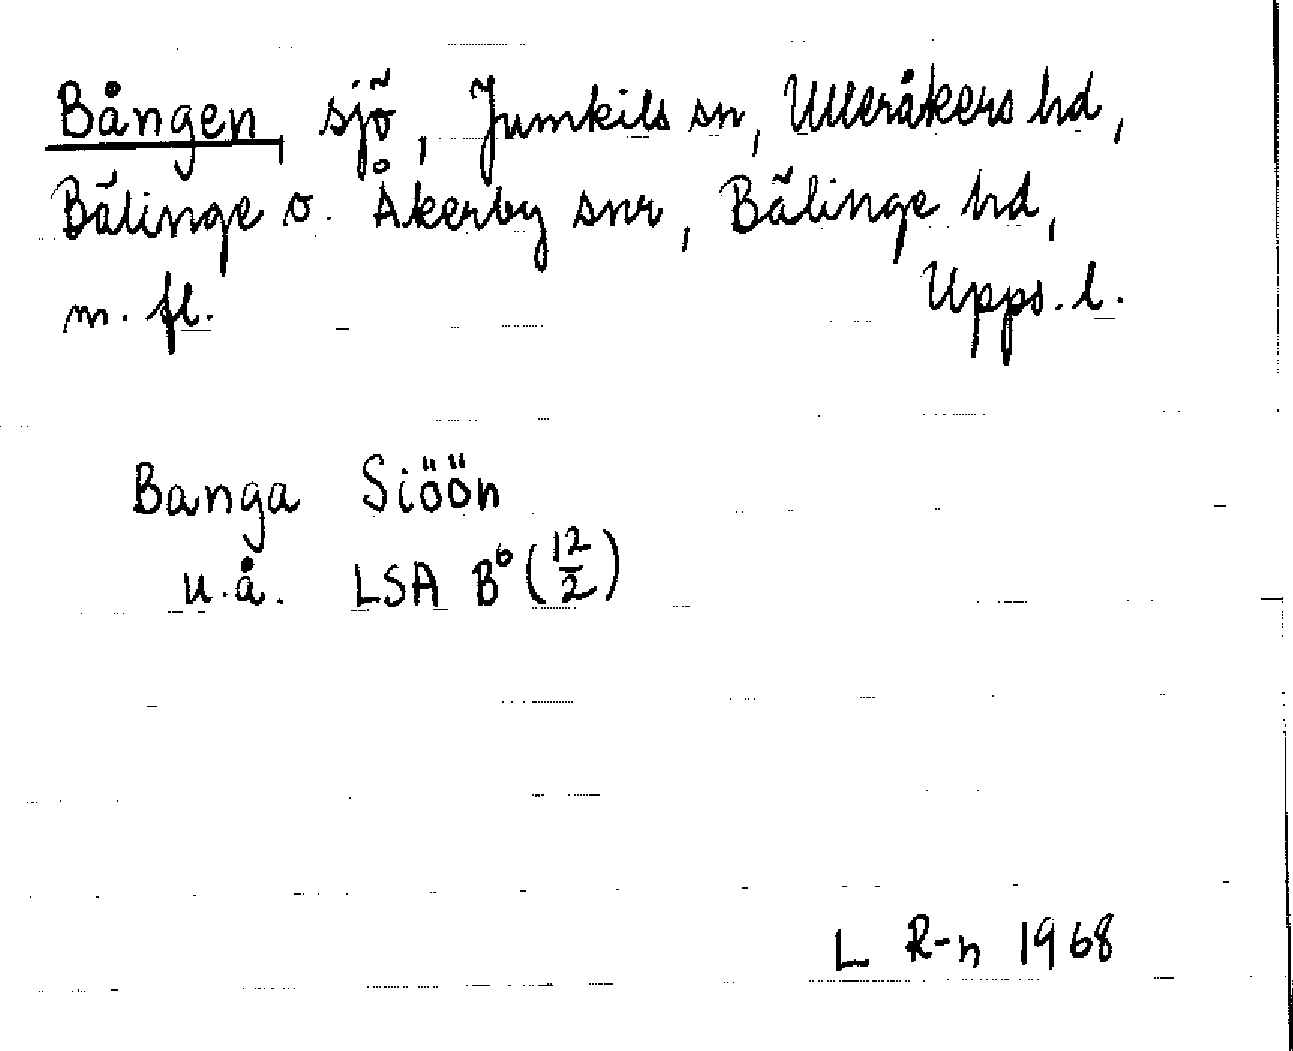 Bången, sjö, Jumkils sn, Ulleråkers hd,
Bälinge o. Åkerby snr, Bälinge hd,
m. fl. Upps. l.
Banga Siöön
u.å. LSA B⁶ (12/2)
L R-n 1968